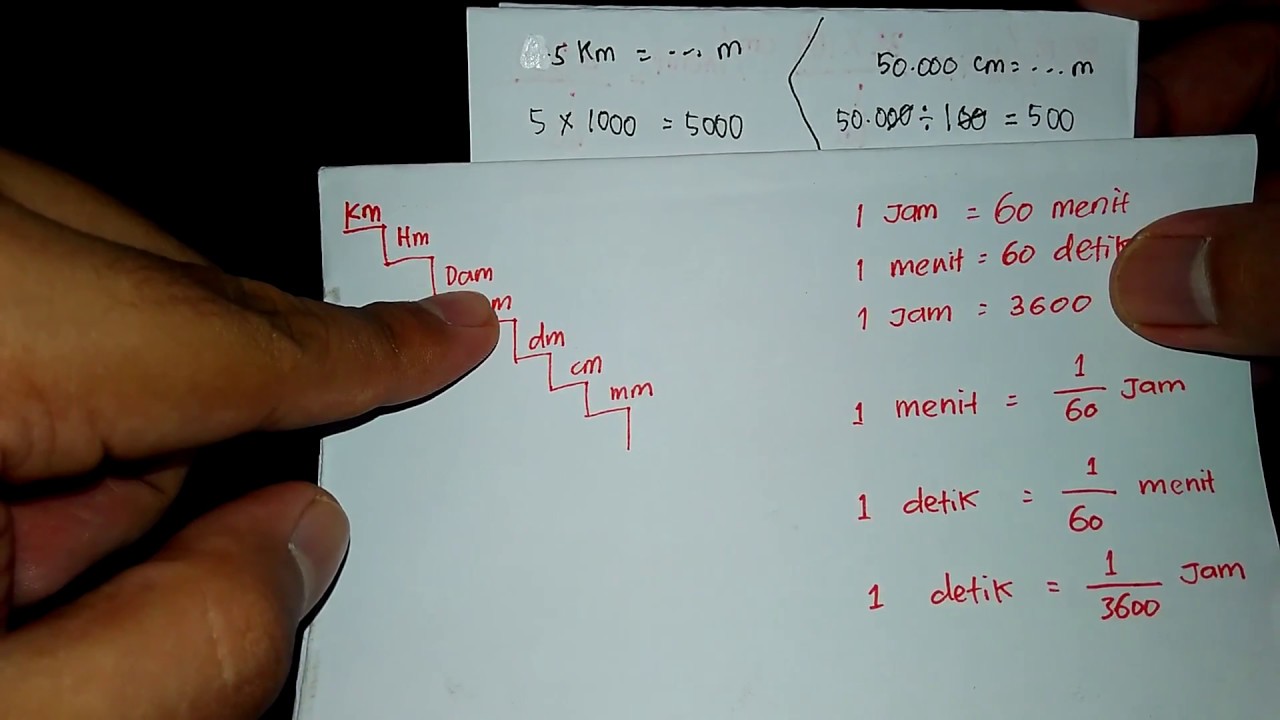 5 Km = .... m
50.000 cm = ... m
5 x 1000 = 5000
50.000 ÷ 100 = 500
Km
Hm
Dam
m
dm
cm
mm
1 Jam = 60 menit
1 menit = 60 detik
1 Jam = 3600
1 menit = 1/60 Jam
1 detik = 1/60 menit
1 detik = 1/3600 Jam